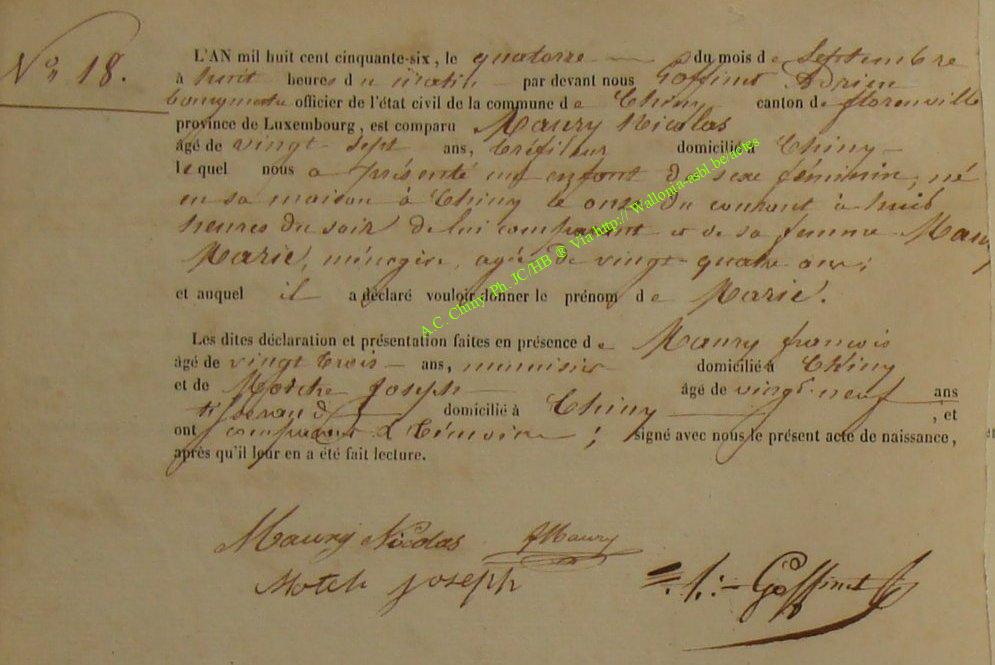 No 18.
L'AN mil huit cent cinquante-six, le quatorze du mois de Septembre
à huit heures du matin par devant nous Goffinet Adrien
bourgmestre officier de l'état civil de la commune de Chiny canton de florenville
province de Luxembourg, est comparu Maury Nicolas
âgé de vingt-sept ans, tréfileur domicilié à Chiny
lequel nous a présenté un enfant de sexe féminin, né
en sa maison à Chiny le onze du courant à huit
heures du soir de lui comparant et de sa femme Maury
Marie, ménagère, agée de vingt-quatre ans;
et auquel il a déclaré vouloir donner le prénom de Marie.
A.C. Chiny Ph. JC/HB ® Via http:// Wallonia-asbl be/actes
Les dites déclaration et présentation faites en présence de Maury françois
âgé de vingt trois ans, menuisier domicilié à Chiny
et de Joseph âgé de vingt-neuf ans
tisserand domicilié à Chiny , et
ont comparant & témoins ; signé avec nous le présent acte de naissance,
après qu'il leur en a été fait lecture.
Maury Nicolas fMaury
Motch joseph Goffinet